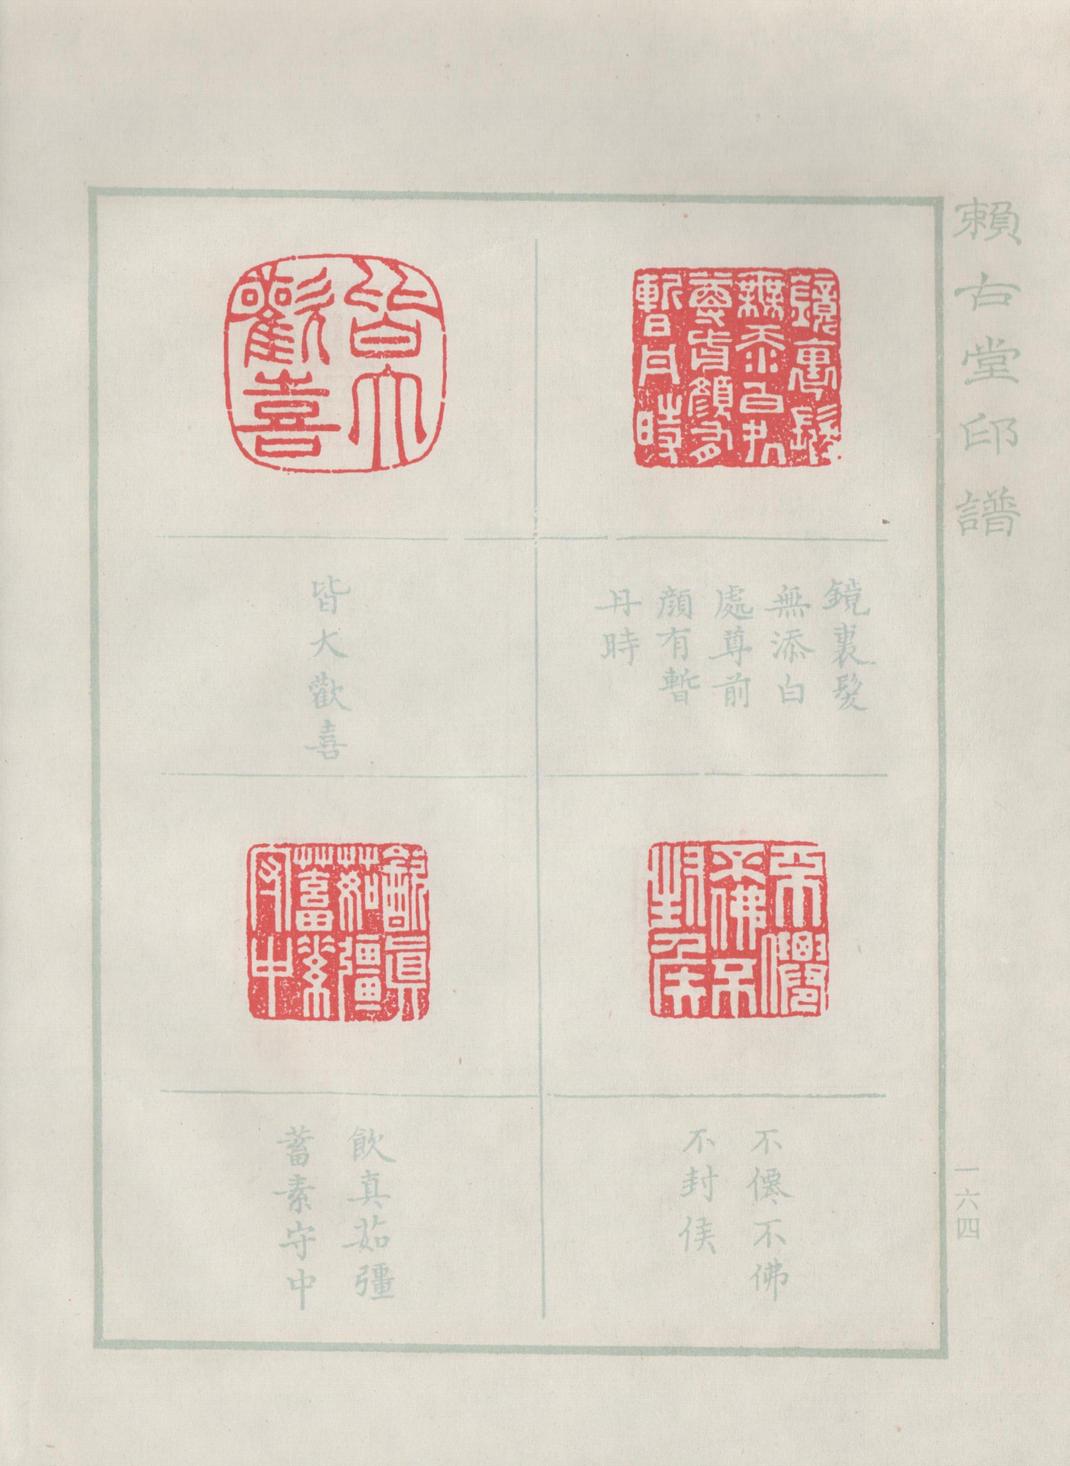 賴古堂印譜
鏡裏髮
無添白
處尊前
顔有暫
丹時
皆大歡喜
不僊不佛
不封侯
飲真茹彊
蓄素守中
一六四